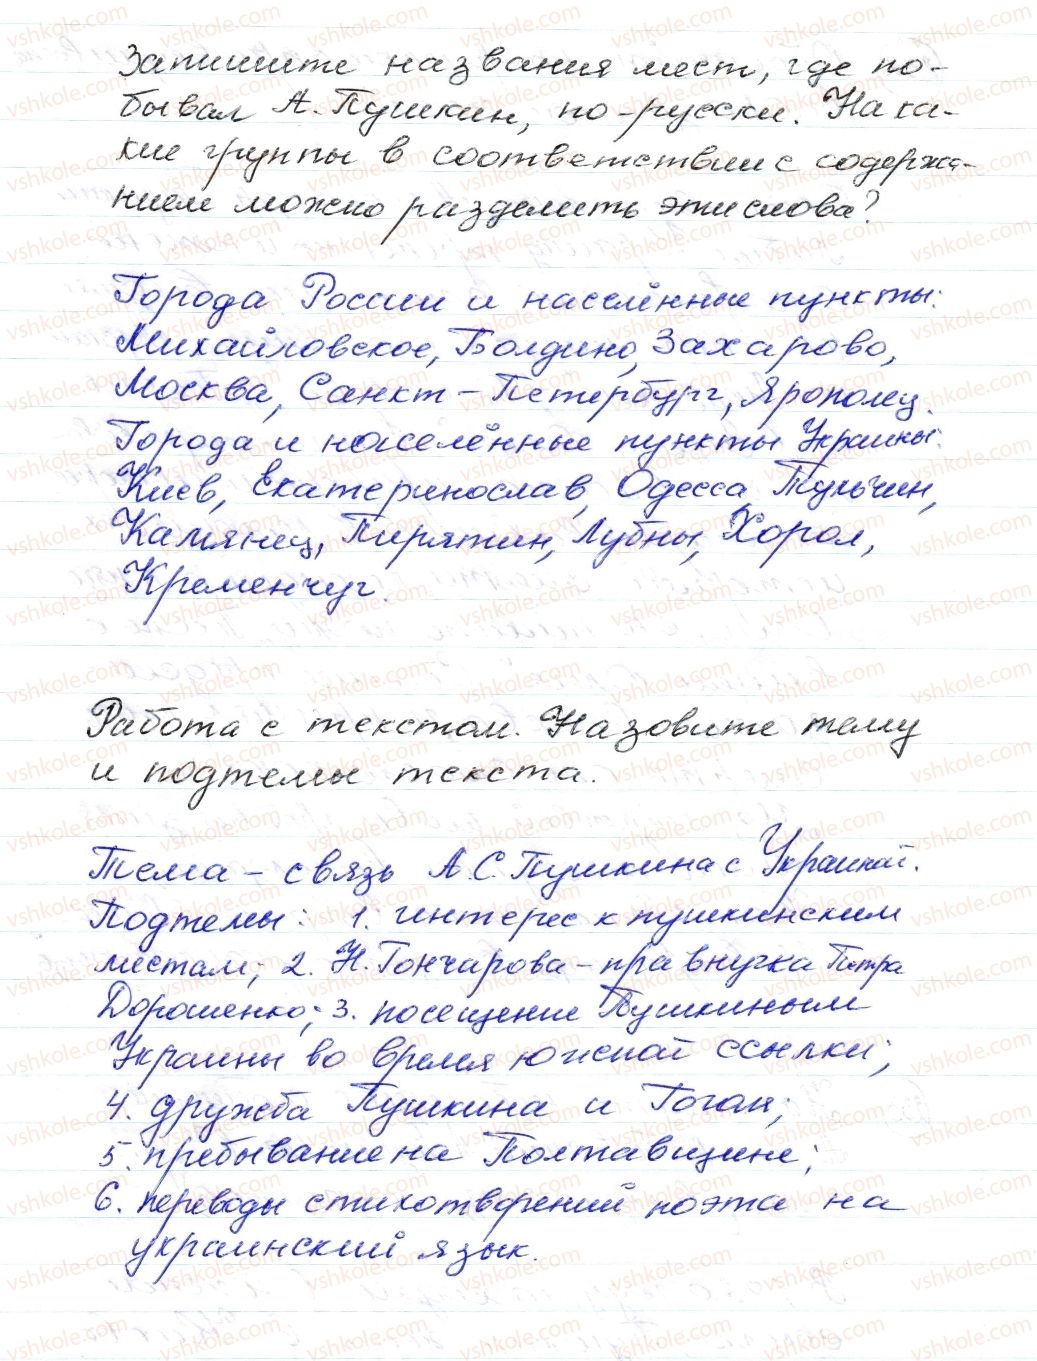 Запишите названия мест, где по-
бывал А. Пушкин, по-русски. На ка-
кие группы в соответствии с содержа-
нием можно разделить эти слова?
Города России и населённые пункты:
Михайловское, Болдино, Захарово,
Москва, Санкт-Петербург, Ярополец.
Города и населённые пункты Украины:
Киев, Екатеринослав, Одесса, Тульчин,
Камянец, Пирятин, Лубны, Хорол,
Кременчуг.
Работа с текстом. Назовите тему
и подтемы текста.
Тема – связь А.С. Пушкина с Украиной.
Подтемы: 1. интерес к пушкинским
местам; 2. Н. Гончарова – правнучка Петра
Дорошенко; 3. посещение Пушкиным
Украины во время южной ссылки;
4. дружба Пушкина и Гоголя;
5. пребывание на Полтавщине;
6. переводы стихотворений поэта на
украинский язык.